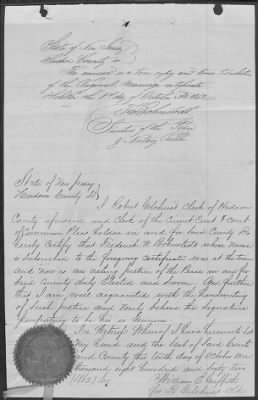 State of New Jersey
Hudson County ss
The annexed is a true copy and true translation
of the Original Marriage certificate
Justice of the Peace
& Notary Public
State of New Jersey
Hudson County SS
I Robert Gilchrist Clerk of Hudson
County aforesaid and Clerk of the Circuit Court & Court
of Common Pleas holden in and for said County do
hereby certify that Frederick W. whose name
is subscribed to the foregoing certificate was at the time
and now is an acting Justice of the Peace in and for
said County duly Elected and Sworn. And further
that I am well acquainted with the handwriting
of such Justice and verily believe the signature
purporting to be his is Genuine
In Witness Whereof I have hereunto set
my hand and the Seal of said Court
and County this tenth day of October one
thousand eight hundred and sixty two
(1862)
William E. Griffith
for R Gilchrist Clk